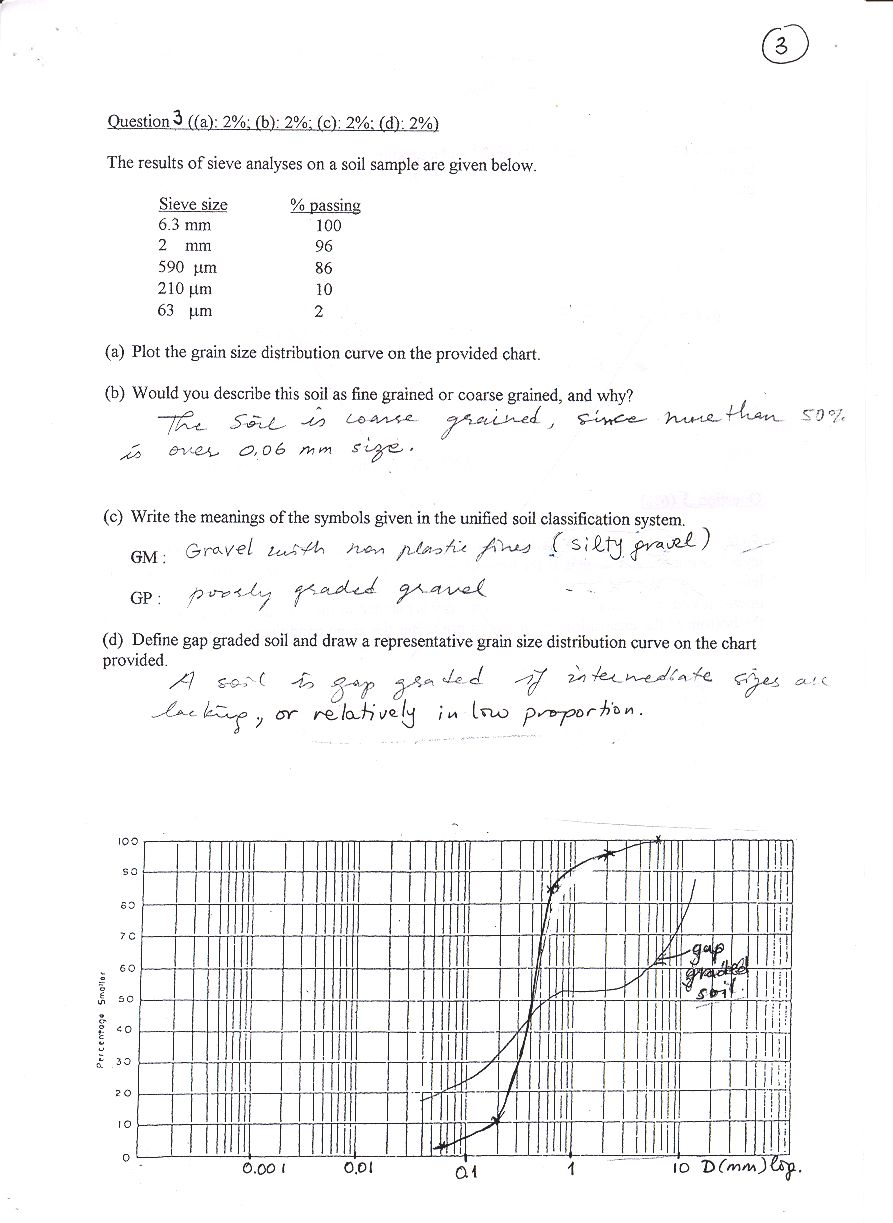 3
Question 3 ((a): 2%; (b): 2%; (c): 2%; (d): 2%)
The results of sieve analyses on a soil sample are given below.
Sieve size % passing
6.3 mm 100
2 mm 96
590 µm 86
210 µm 10
63 µm 2
(a) Plot the grain size distribution curve on the provided chart.
(b) Would you describe this soil as fine grained or coarse grained, and why?
The soil is coarse grained, since more than 50%
is over 0.06 mm size.
(c) Write the meanings of the symbols given in the unified soil classification system.
GM : Gravel with non plastic fines (silty gravel)
GP : poorly graded gravel
(d) Define gap graded soil and draw a representative grain size distribution curve on the chart
provided.
A soil is gap graded if intermediate sizes are
lacking, or relatively in low proportion.
100
90
80
70
60
50
40
30
20
10
0
Percentage Smaller
gap
graded
soil
0.001 0.01 0.1 1 10 D(mm) log.